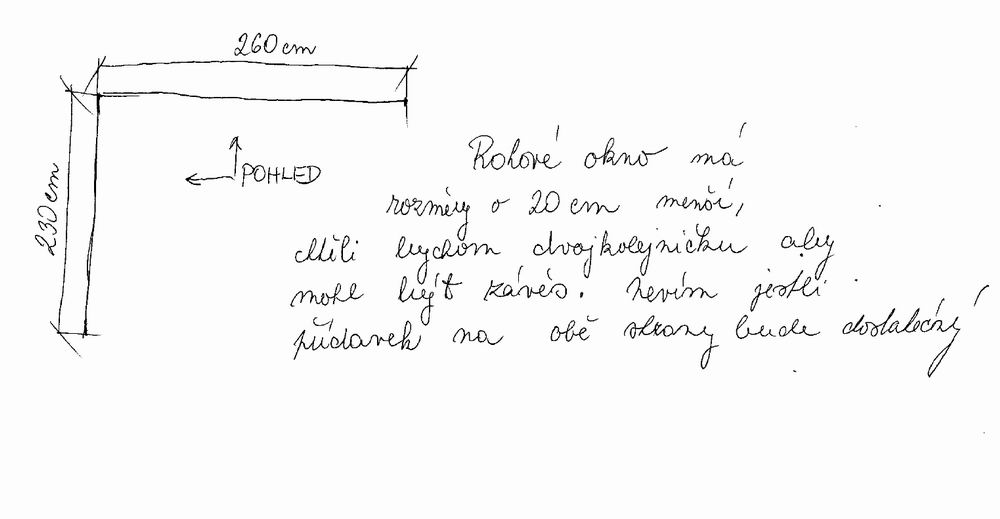 260 cm
230 cm
POHLED
Rohové okno má
rozměry o 20 cm menší,
chtěli bychom dvojkolejničku aby
mohl být závěs. Nevím jestli
přídavek na obě strany bude dostatečný